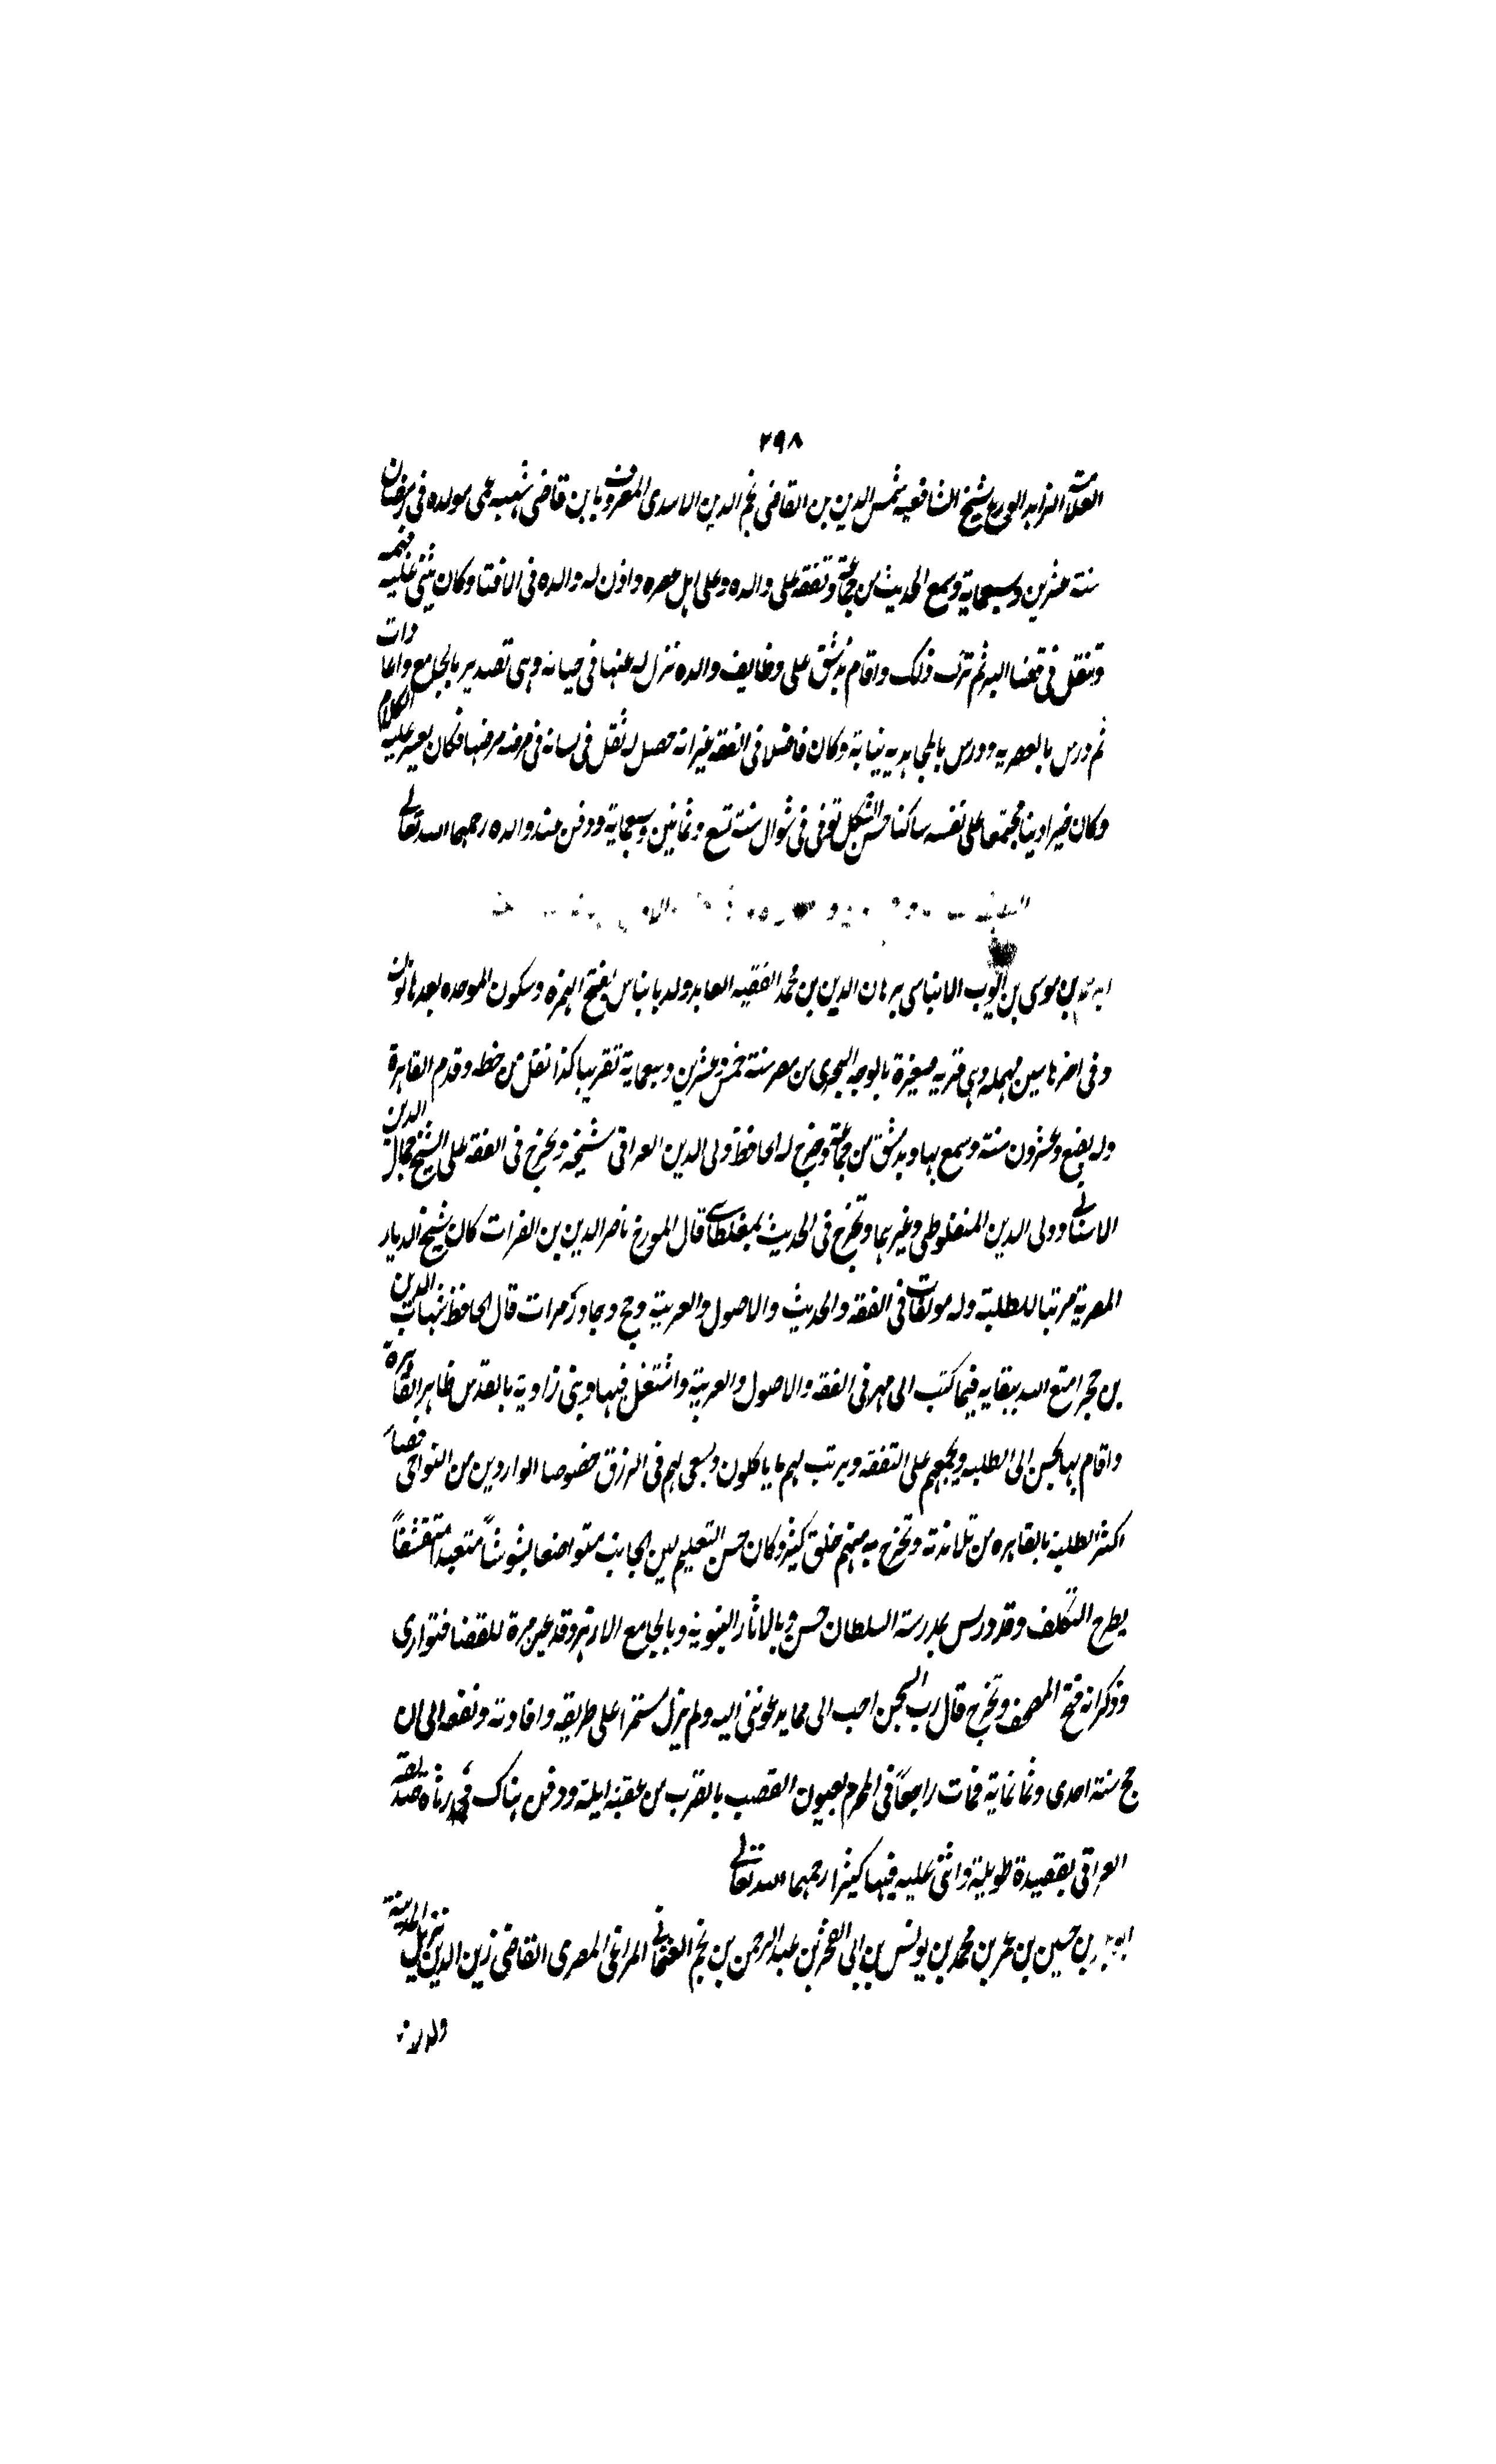 ٢٩٨
العلامة الزاهد الورع شيخ الشافعيه شمس الدين بن القاضى نجم الدين الاسدى المعروف بابن قاضى شهبه عمى مولده فى رمضان
سنة عشرين وسبعماية وسمع الحديث من جماعة وتفقه على والده وعلى اهل عصره واذن له والده فى الافتا وكان يثنى على فهمه
وتنقل فى قضا البر ثم ترك ذلك واقام بدمشق على وظايف والده نزل له عنها فى حياته وهى تصدير بالجامع واعادات
ثم درس بالعصريه ودرس بالمجاهديه نيابة وكان فاضلا فى الفقه غير انه حصل له ثقل فى لسانه فى مرضه مرضها فكان يعسر عليه الكلام
وكان خيرا دينا مجتمعا على نفسه ساكنا حسن الشكل توفى فى شوال سنة تسع وثمانين وسبعماية ودفن عند والده رحمهما الله تعالى
بن موسى بن ايوب الابناسى برهان الدين بن محمد الفقيه العابد ولد بابناس بفتح الهمزه وسكون الموحده بعدها نون
وفى اخرها سين مهمله وهى قريه صغيرة بالوجه البحرى من مصر سنة خمس وعشرين وسبعماية تقريبا كذا نقل من خطه وقدم القاهرة
وله بضع وعشرون سنة وسمع بها وبدمشق من جماعة وخرج له الحافظ ولى الدين العراقى مشيخه وتخرج فى الفقه على الشيخ جمال الدين
الاسنائى وولى الدين المنفلوطى وغيرهما وتخرج فى الحديث بمغلطاى قال المورخ ناصر الدين بن الفرات كان شيخ الديار
المصرية مرتبا للطلبة وله مولفات فى الفقه والحديث والاصول والعربية وحج وجاور مرات قال الحافظ شهاب الدين
بن حجر امتع الله ببقايه فيما كتب الى مهر فى الفقه والاصول والعربية واشتغل فيها وبنى زاوية بالمقدس ظاهر القاهرة
واقام بها يحسن الى الطلبه ويجمعهم على التفقه ويرتب لهم ما ياكلون ويسعى لهم فى الرزق خصوصا الواردين من النواحى فصار
اكثر الطلبة بالقاهره من تلامذته وتخرج به منهم خلق كثير وكان حسن التعليم لين الجانب متواضعا بشوشاً متعبدا متقشفاً
يطرح التكلف وقد درس بمدرسة السلطان حسن وبالاثار النبوية وبالجامع الازهر وقد عين مرة للقضا فتوارى
وذكر انه فتح المصحف وتخرج قال رب السجن احب الى مما يدعوننى اليه ولم يزل مستمرا على طريقه وافادته ونفعه الى ان
حج سنة احدى وثمانماية فمات راجعاً فى المحرم بعيون القصب بالقرب من عقبة ايلة ودفن هناك رثاه
العراقى بقصيدة طويلة واثنى عليه فيها كثيرا رحمهما الله تعالى
ابو بكر بن حسين بن عمر بن محمد بن يونس بن ابى الفخر بن عبد الرحمن بن نجم العثمانى المراغى المصرى القاضى زين الدين نزيل المدينة
ولد